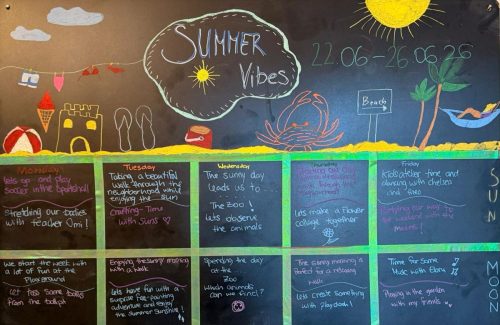 SUMMER
Vibes
22 06 - 26 06 26
Beach
Monday
Tuesday
Wednesday
Friday
SUN
Lets go and play
Soccer in the Sportshall
Stretching our bodies
with teacher Omi!
Taking a beautiful
walk through the
neighborhood while
enjoying the sun
Crafting-Time
with Suns ♡
The sunny day
leads us to...
The Zoo!
Lets observe
the animals
Lets make a flower
collage together
Kids atelier time and
dancing with chelsea
and
with the
MOON
We start the week with
a lot of fun at the
Playground
Let
from the ballpit
Enjoying the sunny morning
with a walk
Lets have fun with a
surprise
adventure and enjoy
the summer Sunshine!
Spending the day
at the
Zoo
Which animals
can we find?
The sunny morning is
Perfect for a relaxing
walk
Lets create something
with Playdoh!
Time for some
Music with Elena
Playing in the garden
with my friends